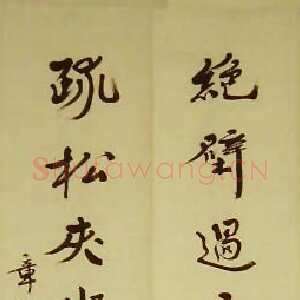 絕壁過
疏松夾
章
Shufawang.CN